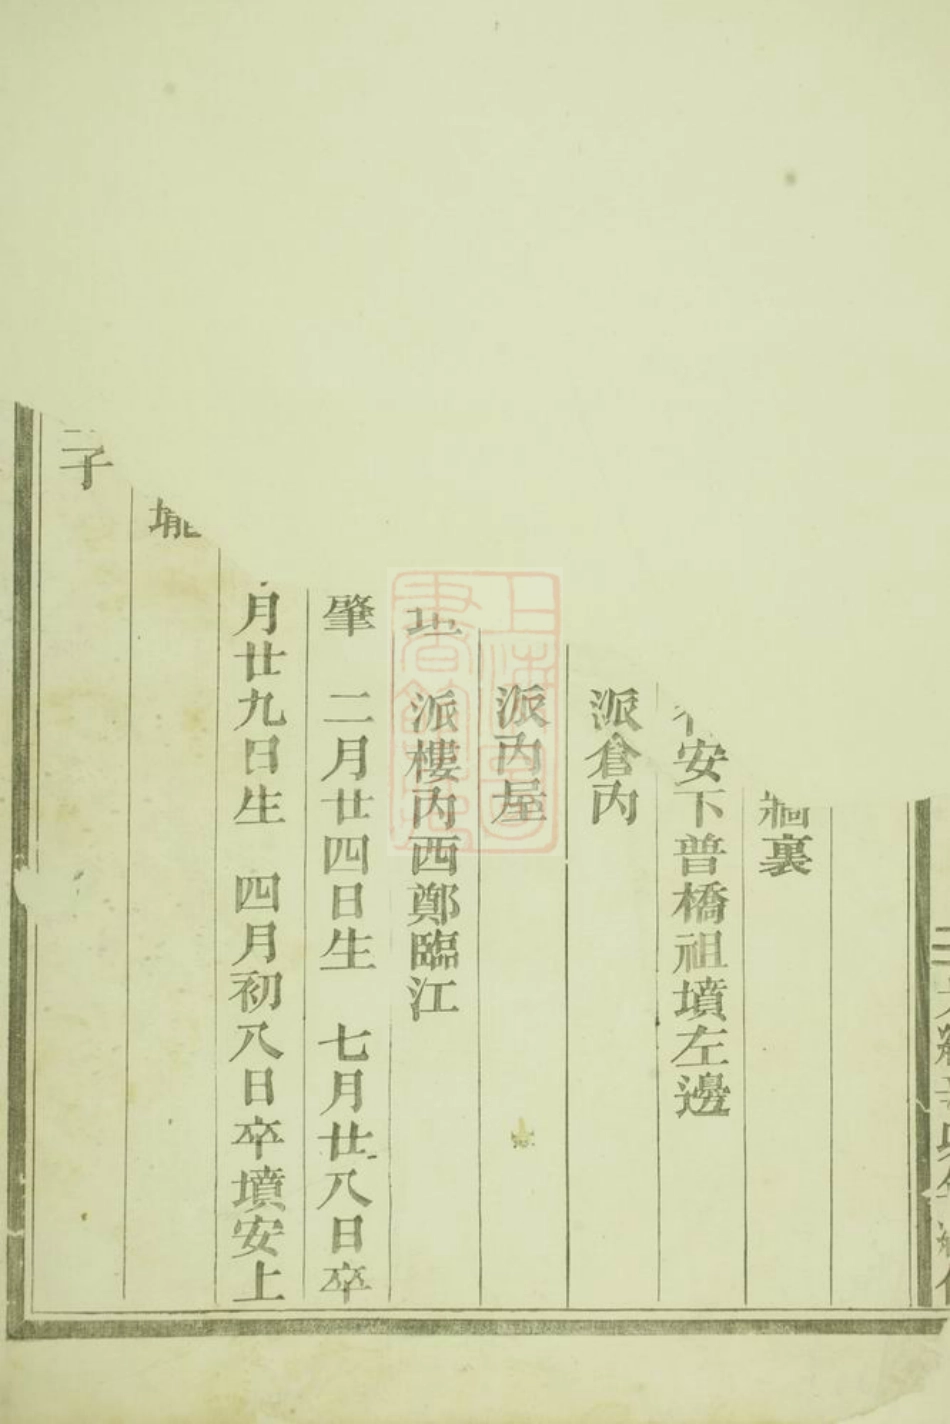 裏
安下普橋祖墳左邊
派倉內
派內屋
派樓內西鄭臨江
肇 二月廿四日生 七月廿八日卒
月廿九日生 四月初八日卒墳安上
壠
子
上海圖書館藏